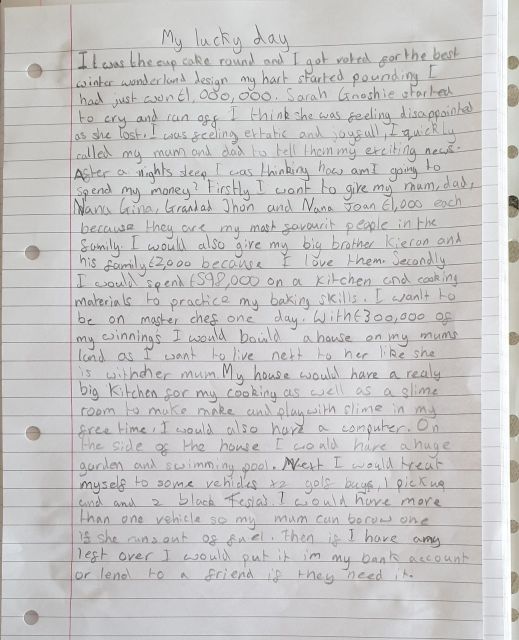 My lucky day
It was the cup cake round and I got voted for the best
winter wonderland design my hart started pounding I
had just won £1,000,000. Sarah Gnoshie started
to cry and ran off I think she was feeling disappointed
as she lost. I was feeling extatic and joyfull, I quickly
called my mum and dad to tell them my exciting news.
After a nights sleep I was thinking how am I going to
spend my money! Firstly I want to give my mam, dad,
Nanu Gina, Grandad Jhon and Nana Joan £1,000 each
because they are my most favourit people in the
family. I would also give my big brother Kieran and
his family £2,000 because I love them. Secondly
I would spend £598,000 on a kitchen and cooking
materials to practice my baking skills. I wanlt to
be on master chef one day. With £300,000 of
my winnings I would bouild a house on my mums
land as I want to live nett to her like she
is withdher mum. My house would have a realy
big kitchen for my cooking as well as a slime
room to make make and play with slime in my
free time. I would also have a computer. On
the side of the house I would have a huge
garden and swimming pool. Next I would treat
myself to some vehicles x2 golf bugs, 1 pickup
and and 2 black Teslas. I would have more
than one vehicle so my mum can borow one
if she runs out of fuel. Then if I have amy
left over I would put it im my bank account
or lend to a friend if they need it.